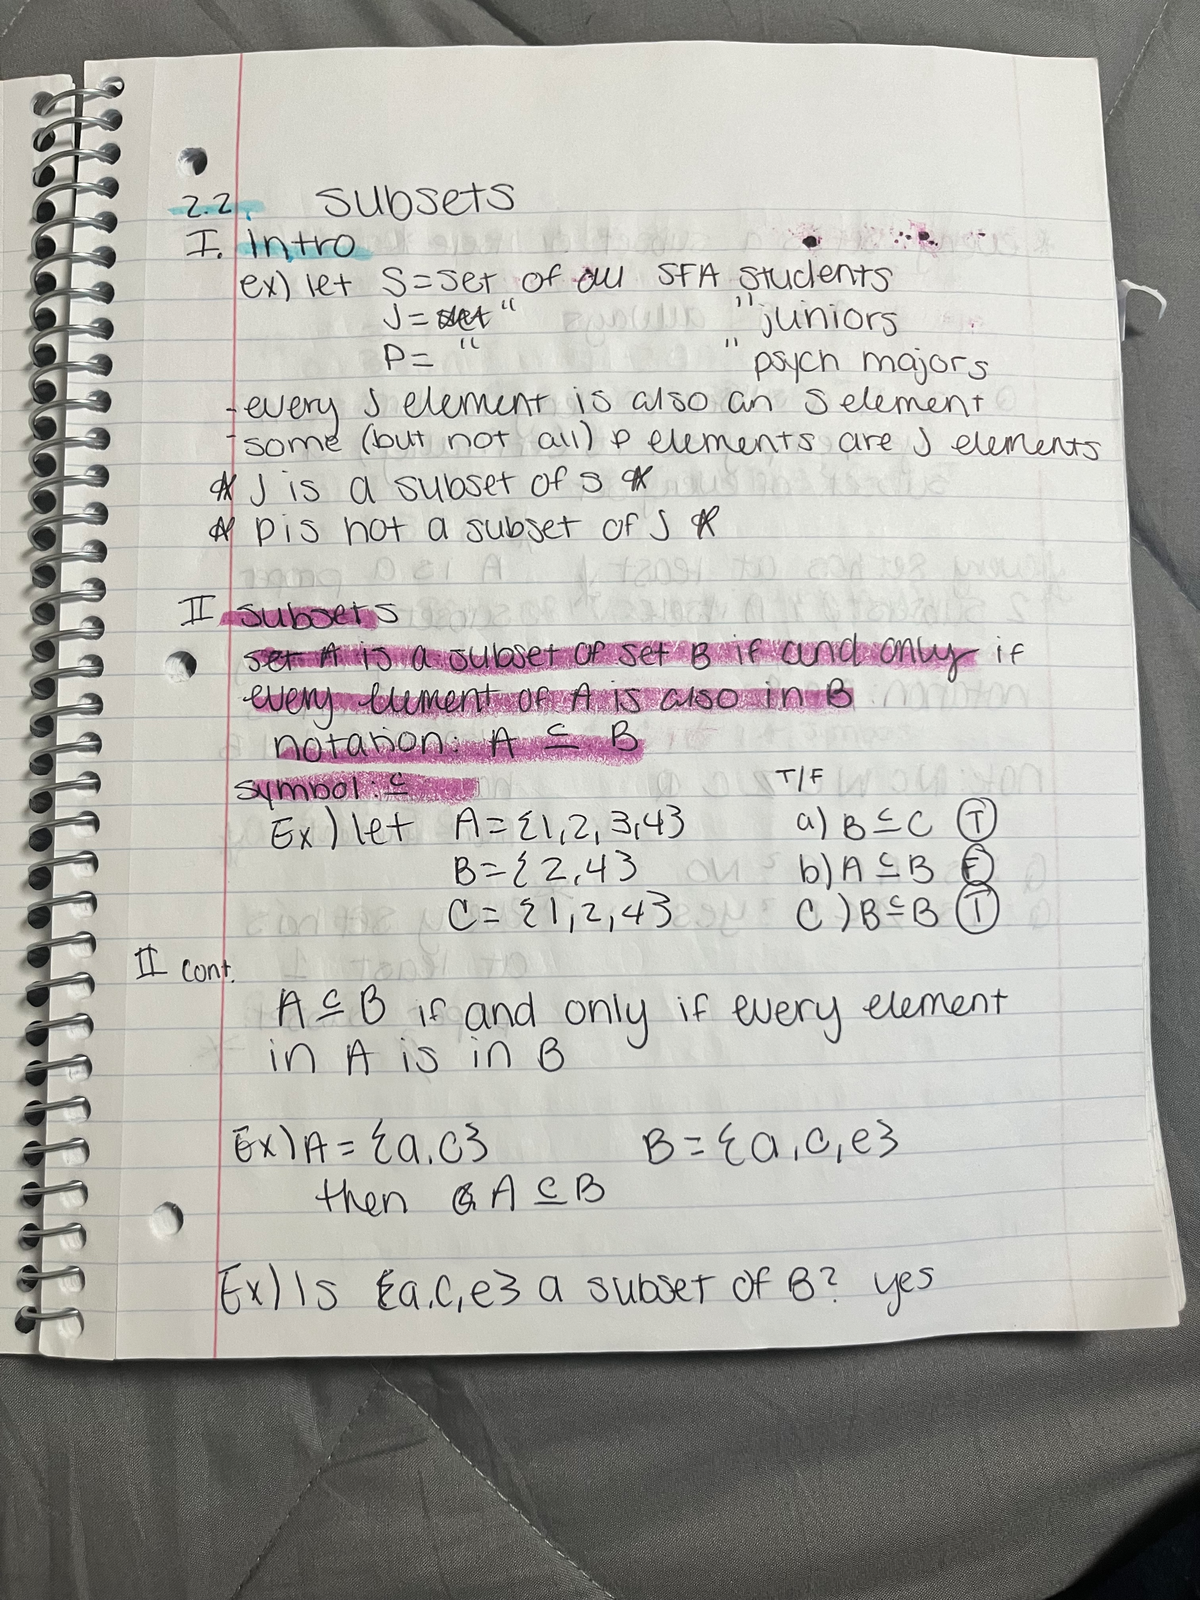 2.2. Subsets
I. Intro
ex) let S = set of all SFA students
J = " " juniors
P = " " psych majors
- every J element is also an S element
- some (but not all) P elements are J elements
* J is a subset of S *
* P is not a subset of J *
II Subsets
set A is a subset of set B if and only if
every element of A is also in B
notation: A ⊆ B
symbol: ⊆ T/F
Ex) let A = {1,2,3,4} a) B ⊆ C T
B = {2,4} b) A ⊆ B F
C = {1,2,4} C) B ⊆ B T
II cont.
A ⊆ B if and only if every element
in A is in B
Ex) A = {a,c} B = {a,c,e}
then A ⊆ B
Ex) Is {a,c,e} a subset of B? yes